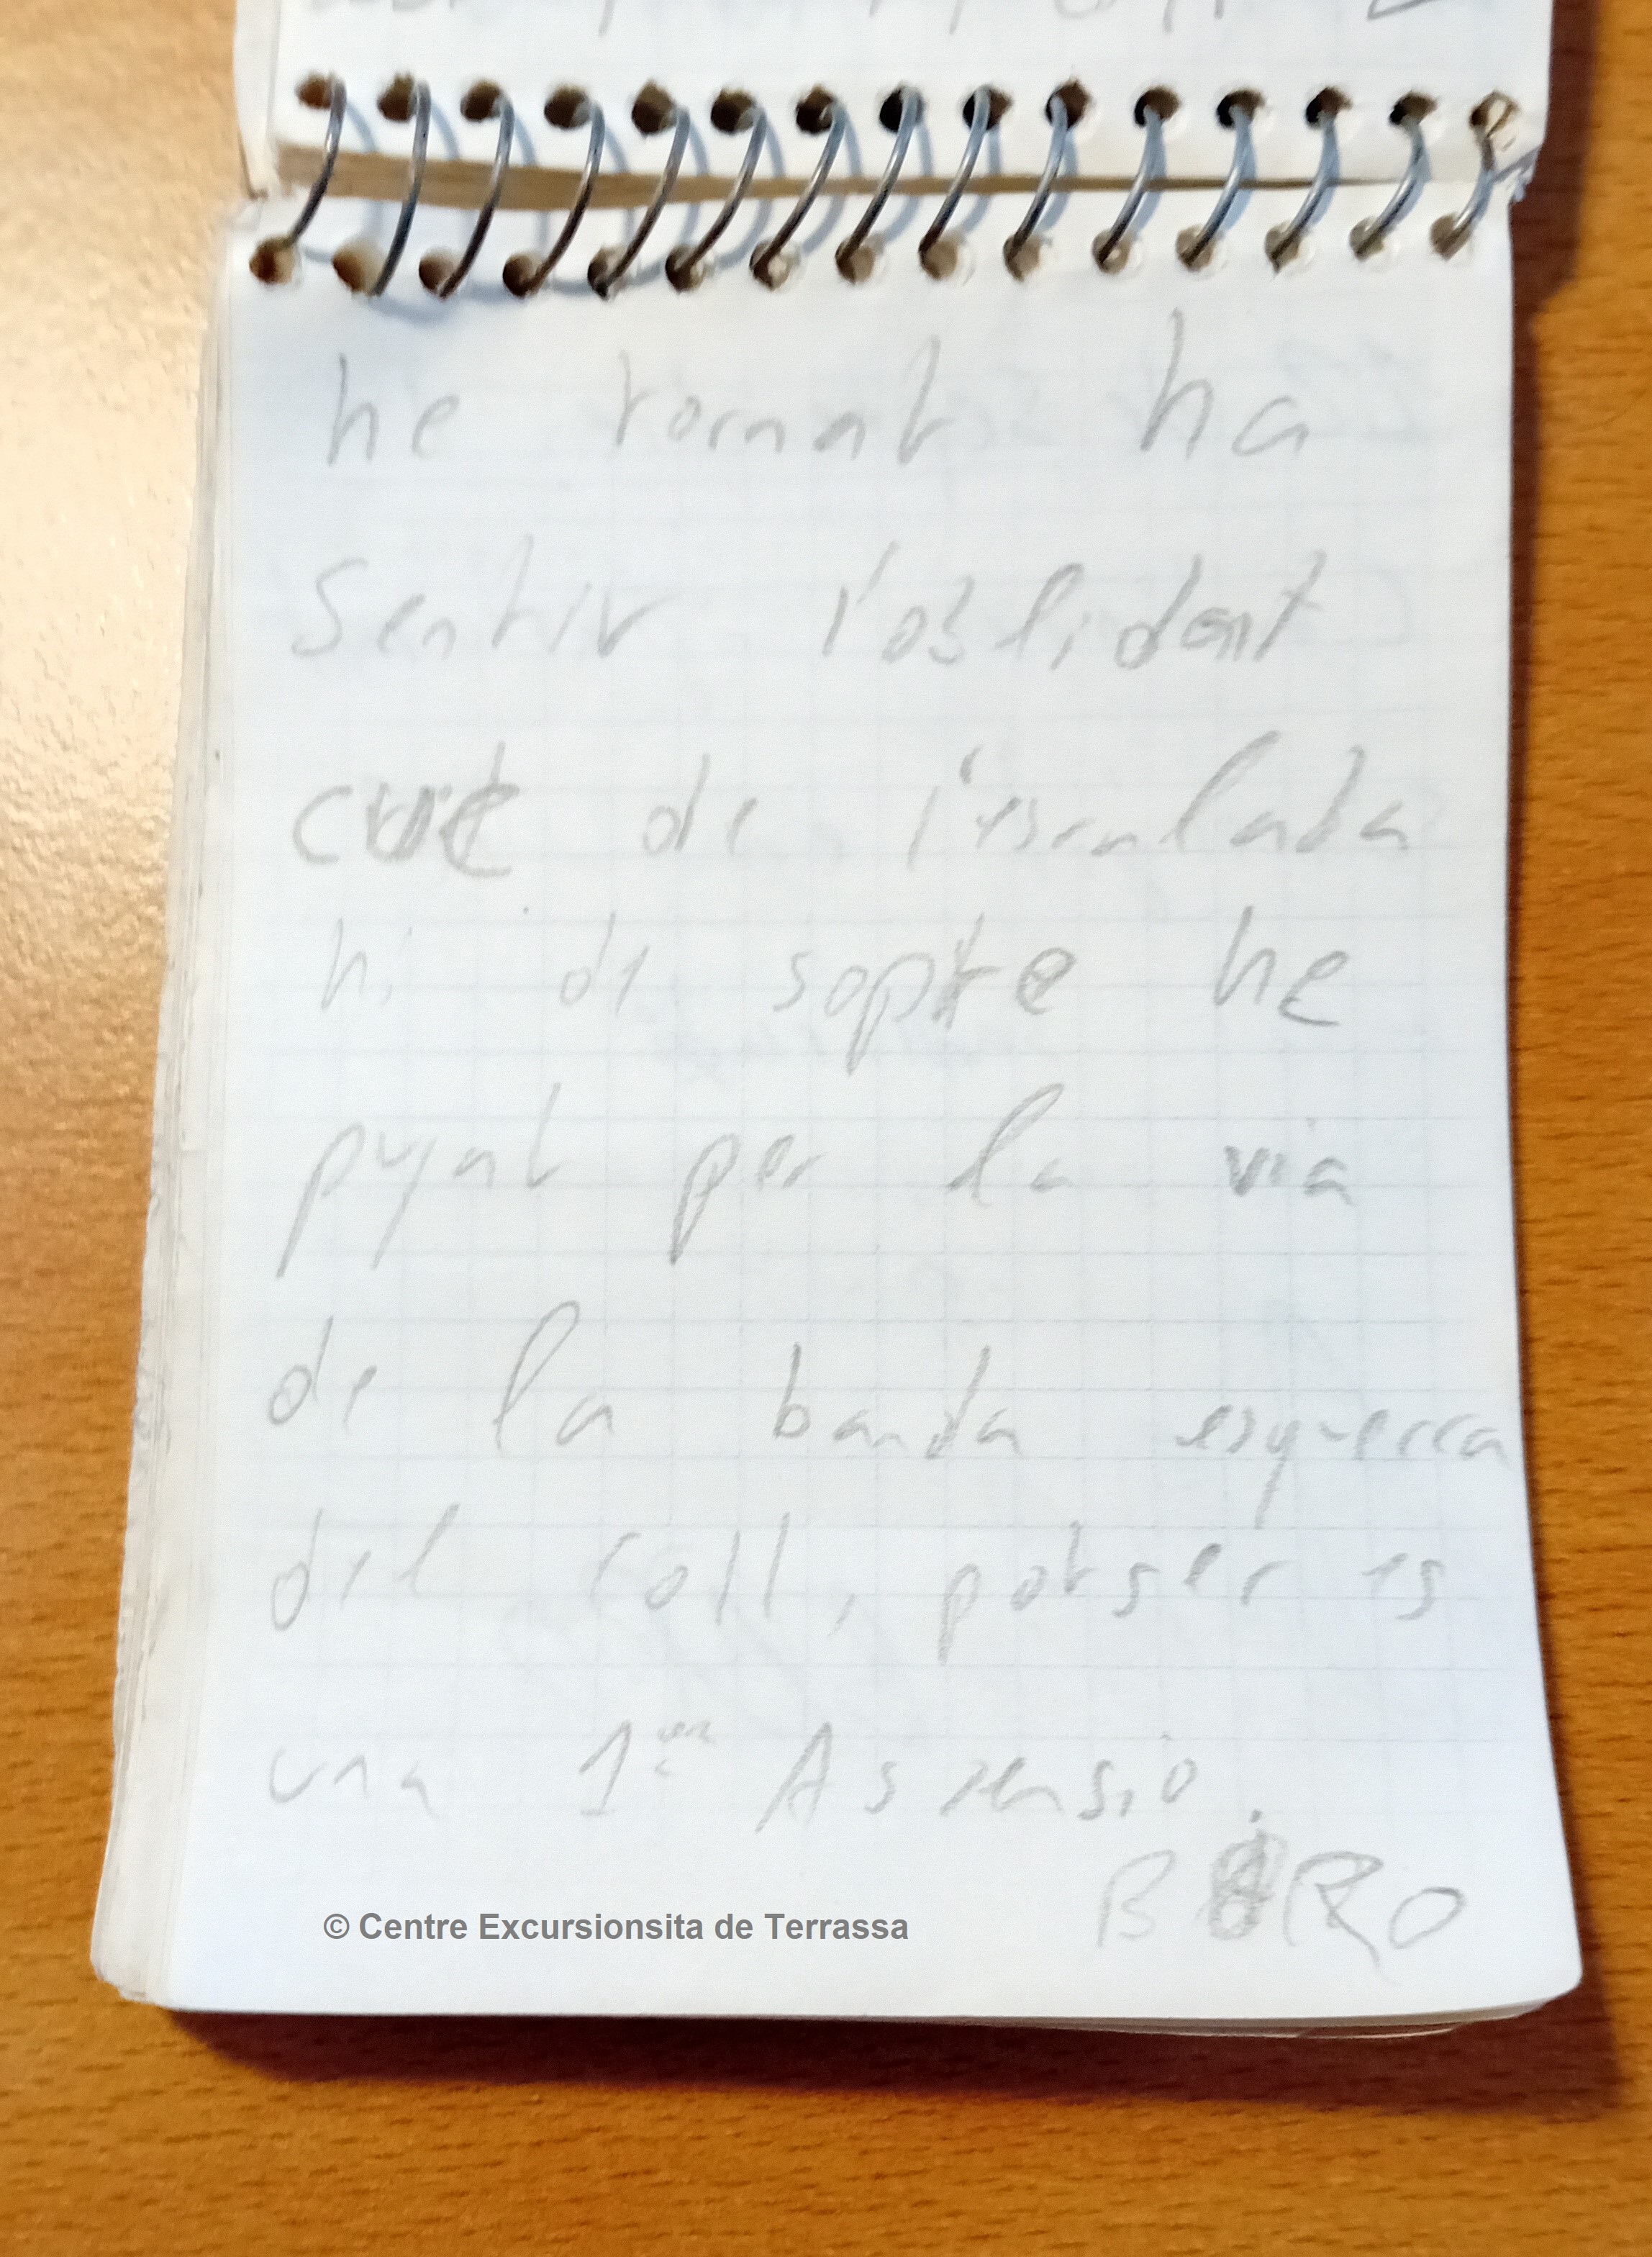 he tornat ha
Sentir l'oblidant
cuc de l'escalada
hi de sopte he
pujat per la via
de la banda esquerra
del coll, potser es
una 1era Assensio.
BIRO
© Centre Excursionsita de Terrassa